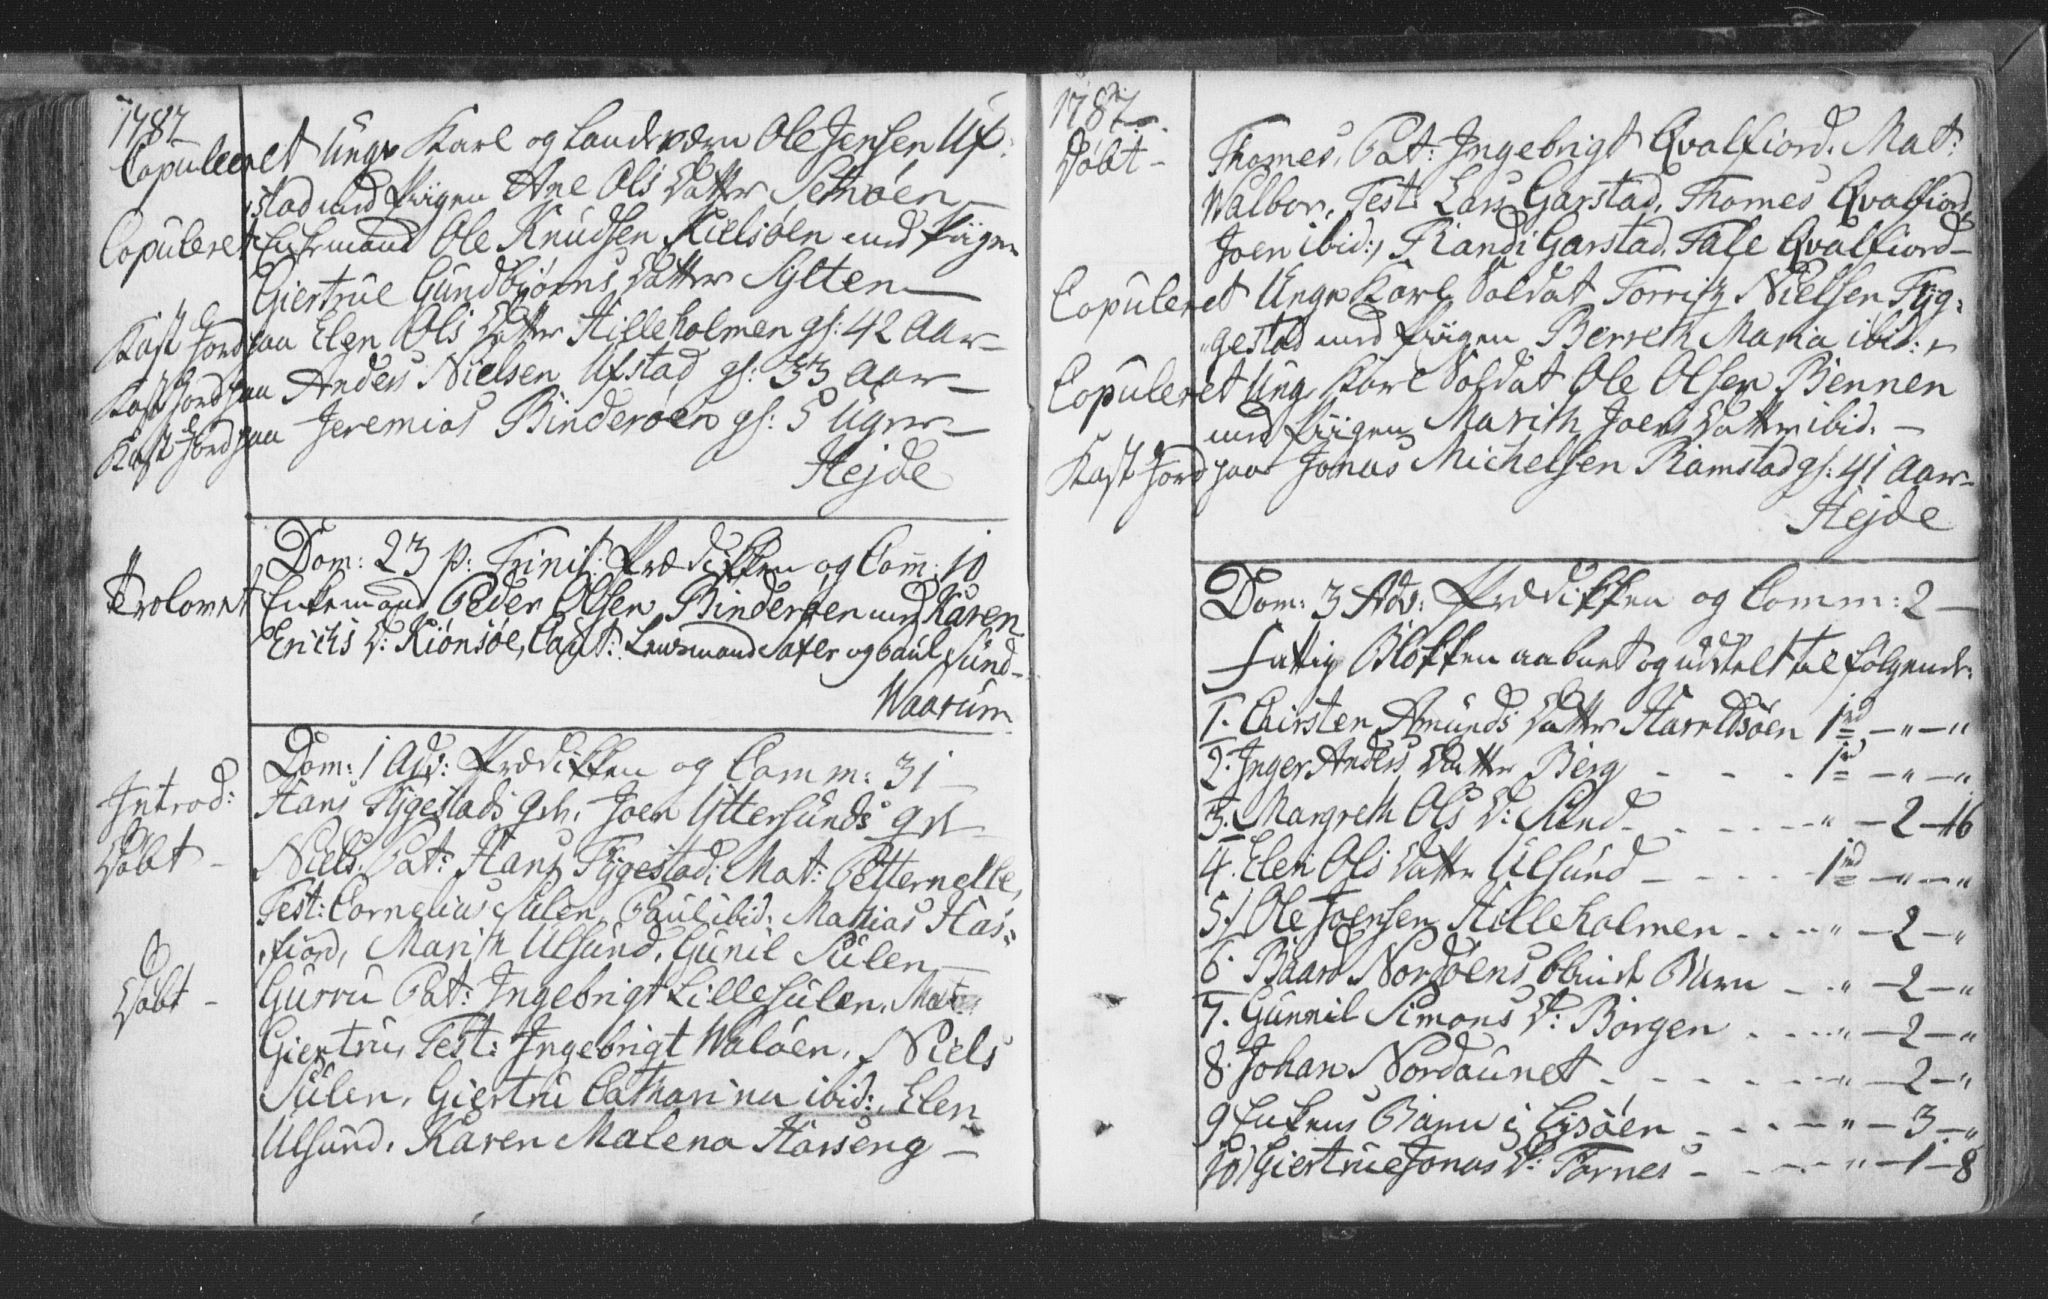 1787
Copuleret Unge Karl og Landeværn Ole Jensen Uf:
stad med Piigen Ane Ols Datter Setnøen
Copuleret Enkemand Ole Knudsen Kielsøen med Piigen
Giertrue Gundbiørns Datter Sylten
Kast Jord paa Elen Ols Datter Hilleholmen gl: 42 Aar
Kast Jord paa Anders Nielsen Ufstad gl: 33 Aar
Kast Jord paa Jeremias Binderøen gl: 5 Uger
Hejde
Dom: 23 p: Trinit: Prædikken og Com: 10
Trolovet Enkemand Peder Olsen Binderøen med Karen
Erichs D: Kiønsøe, Caut: Lensmand Saxer og Paul Sund
Waarum
Dom: 1 Adv: Prædikken og Comm: 31
Introd: Hans Flygestads qv, Joen Yttersunds qv
Døbt - Niels. Pat: Hans Flygestad, Mat: Petternelle,
Test: Cornelius Sulen, Paul ibid: Mathias Has=
fiord, Marith Ulsund, Gunil Sulen
Døbt - Gurru Pat: Ingebrigt Lillesulen, Mat
Giertru, Test: Ingebrigt Waløen, Niels
Sulen, Giertru Catharina ibid: Elen
Ulsund, Karen Malena Horseng
1787
Døbt - Thomes, Pat: Ingebrigt Qvalfiord. Mat:
Walbor, Test: Lars Garstad, Thomes Qvalfiord,
Joen ibid:, Randi Garstad, Tale Qvalfiord
Copuleret Unge Karl Soldat Torris Nielsen Flyg=
gestad med Piigen Bereth Maria ibid:
Copuleret Ung Karl Soldat Ole Olsen Bennen
med Piigen Marith Joens Datter ibid.
Kast Jord paa Jonas Michelsen Ramstad gl: 41 Aar
Hejde
Dom: 3 Adv: Prædikken og Comm: 2
Fattig Blokken aabnet og uddelt til følgende:
1. Chirsten Amunds Datter Hareldsøen 1rd - " - "
2. Inger Anders Datter Berg - - - 1rd - " - "
3. Margreth Ols D: Sund - - - " - 2 - 16
4. Elen Ols Datter Ulsund - - - 1rd - " - "
5. Ole Joensen Hilleholmen - - - " - 2 - "
6. Baard Nordøens blinde Barn - " - 2 - "
7. Gunnil Simons D: Borgen - - - " - 2 - "
8. Johan Nordaunet - - - " - 2 - "
9 Enkens Barn i Eisøen - - - " - 3 - "
10) Giertrue Jonas D: Fornes - - - " - 1 - 8